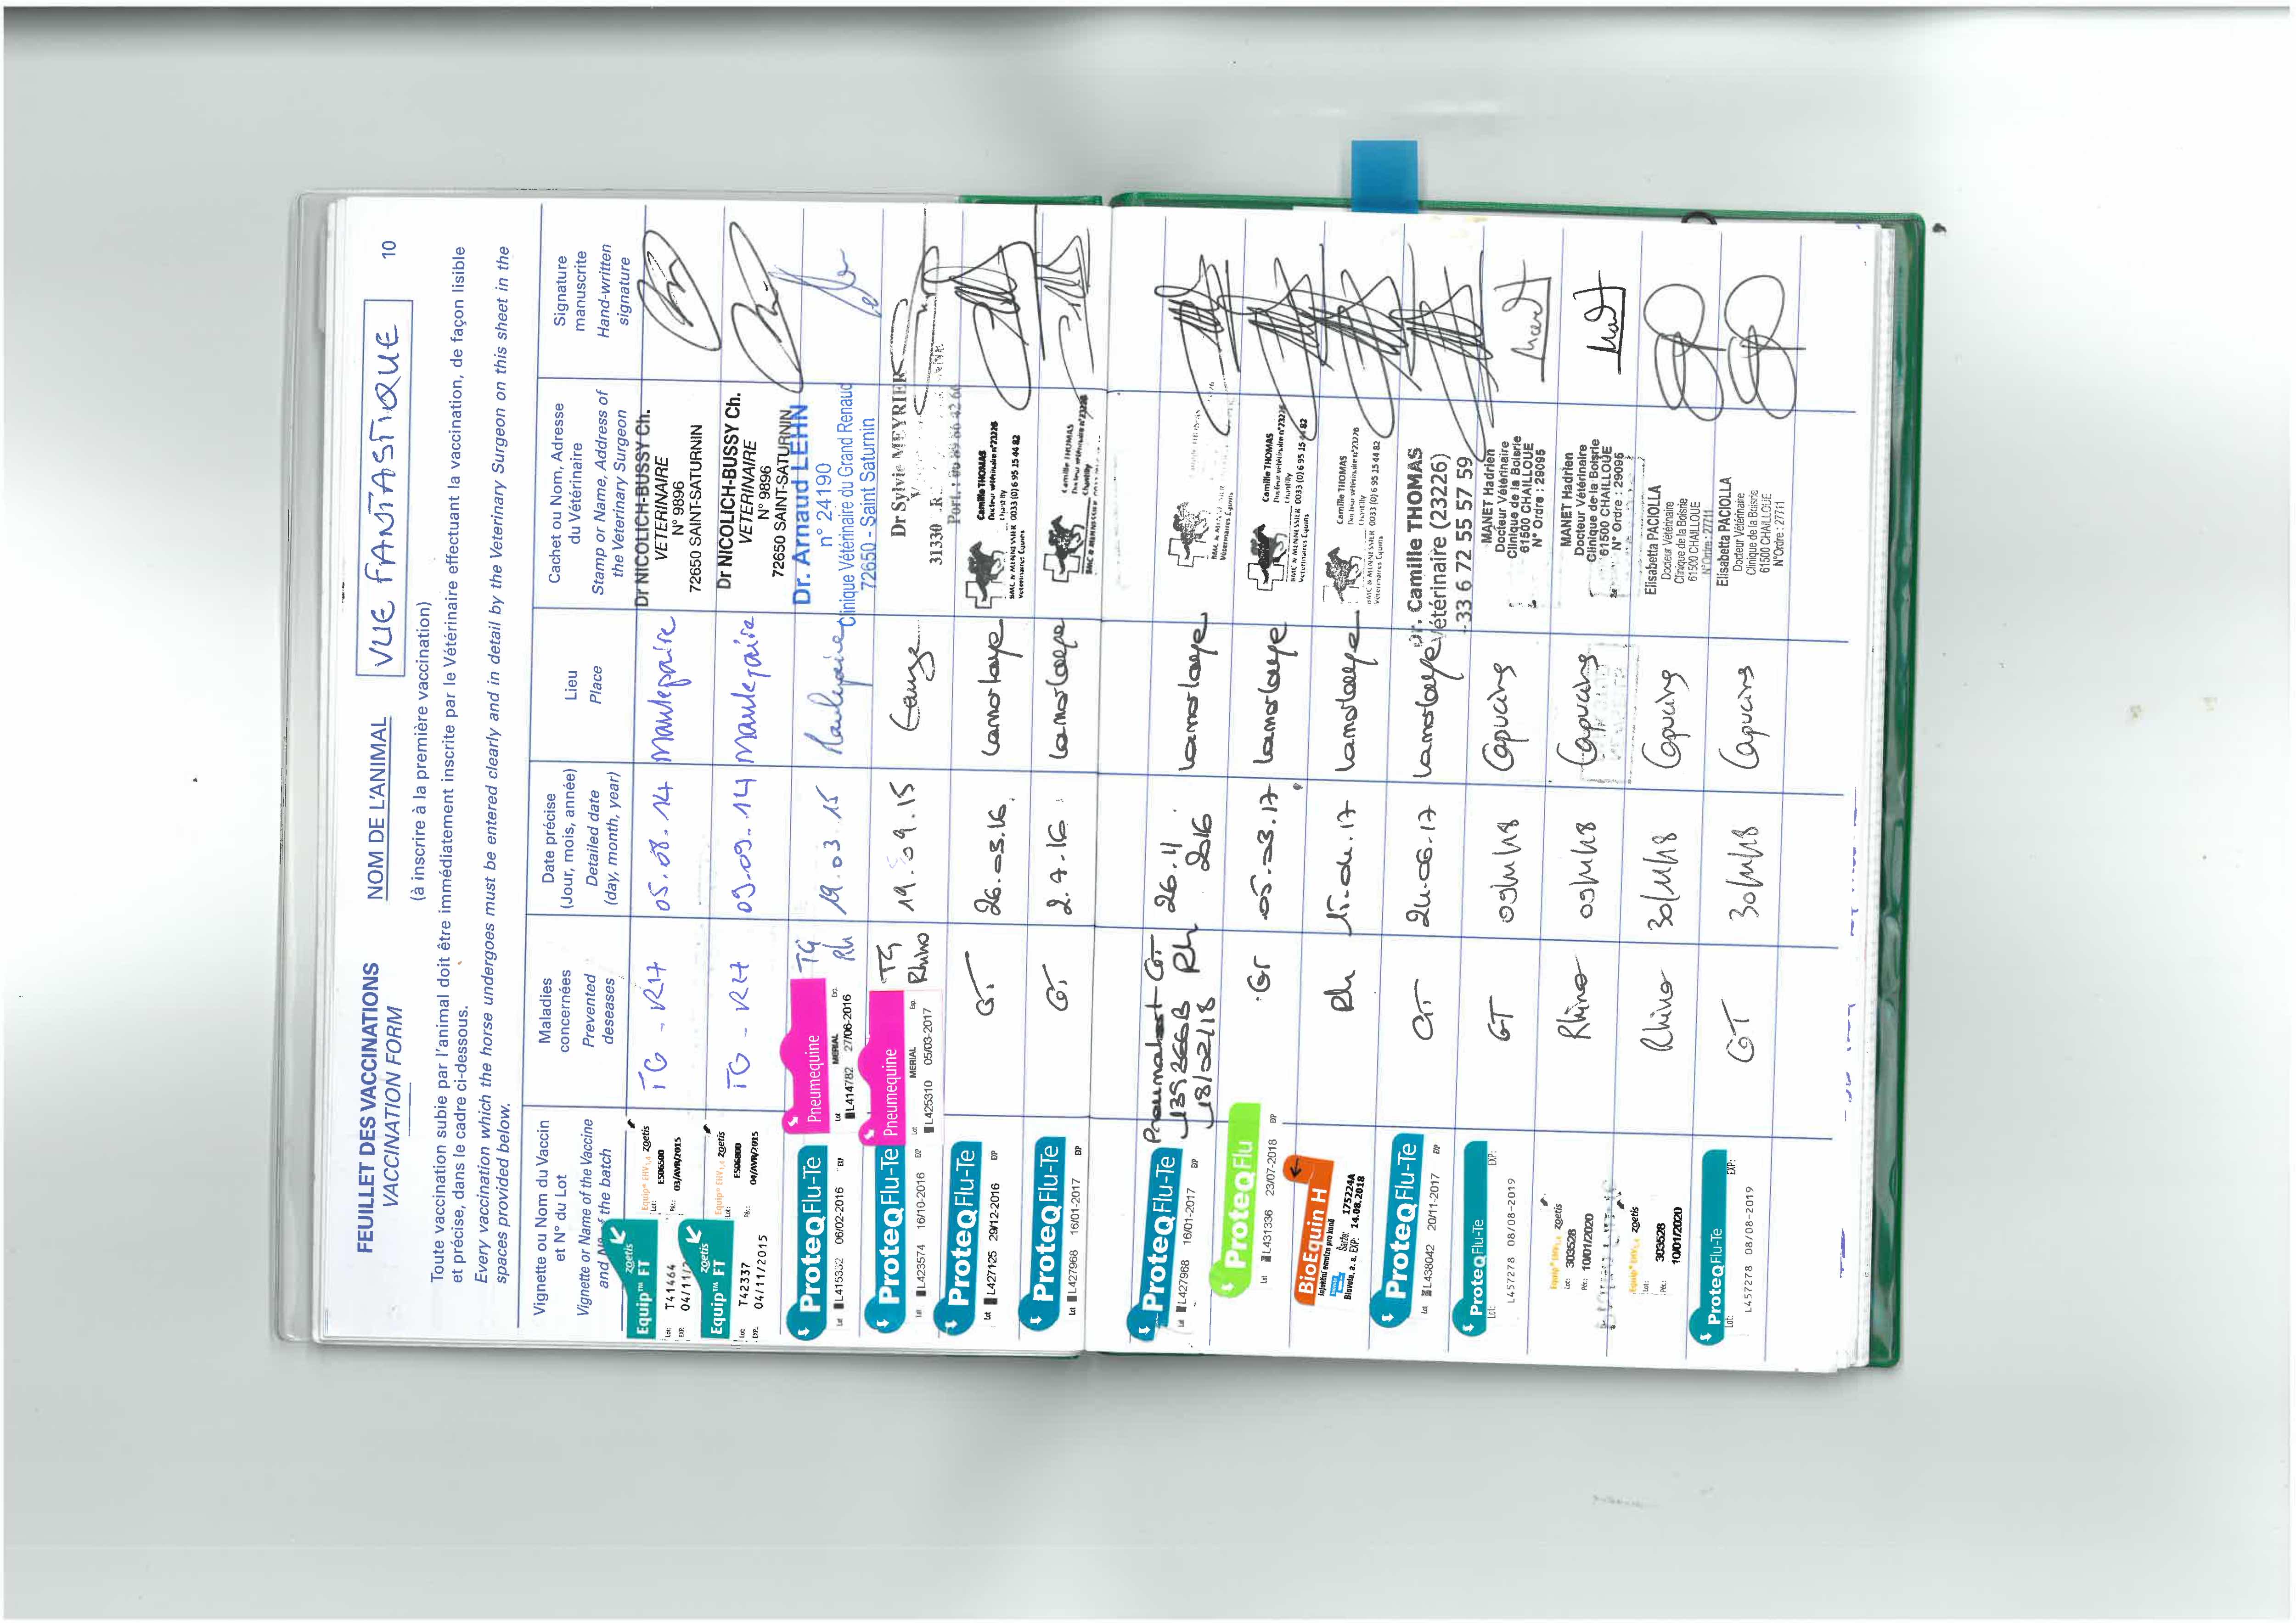 FEUILLET DES VACCINATIONS
VACCINATION FORM
NOM DE L'ANIMAL
VUE FANTASTIQUE
10
(à inscrire à la première vaccination)
Toute vaccination subie par l'animal doit être immédiatement inscrite par le Vétérinaire effectuant la vaccination, de façon lisible
et précise, dans le cadre ci-dessous.
Every vaccination which the horse undergoes must be entered clearly and in detail by the Veterinary Surgeon on this sheet in the
spaces provided below.
Vignette ou Nom du Vaccin
et N° du Lot
Vignette or Name of the Vaccine
and N° of the batch
Maladies
concernées
Prevented
deseases
Date précise
(Jour, mois, année)
Detailed date
(day, month, year)
Lieu
Place
Cachet ou Nom, Adresse
du Vétérinaire
Stamp or Name, Address of
the Veterinary Surgeon
Signature
manuscrite
Hand-written
signature
zoetis
Equip™ FT
Lot: T41464
EXP: 04/11/2
Equip® EHV1,4 zoetis
Lot: ES06500
Pér.: 03/AVR/2015
TG - RH
05.08.14
Maulepaire
Dr NICOLICH-BUSSY Ch.
VETERINAIRE
N° 9896
72650 SAINT-SATURNIN
zoetis
Equip™ FT
Lot: T42337
EXP: 04/11/2015
Equip® EHV1,4 zoetis
Lot: ES06800
Pér.: 04/AVR/2015
TG - RH
09.09.14
Maulepaire
Dr NICOLICH-BUSSY Ch.
VETERINAIRE
N° 9896
72650 SAINT-SATURNIN
ProteQFlu-Te
Lot L415332 06/02-2016 EXP
Pneumequine
MERIAL
Lot L414782 27/06-2016 Exp.
TG
Rh
19.03.15
Maulepaire
Dr. Arnaud LEHN
n° 24190
Clinique Vétérinaire du Grand Renaud
72650 - Saint Saturnin
ProteQFlu-Te
Lot L423574 16/10-2016 EXP
Pneumequine
MERIAL
Lot L425310 05/03-2017 Exp.
TG
Rhino
19.09.15
Dr Sylvie MEYRIER
31330
Port. :
ProteQFlu-Te
Lot L427125 29/12-2016 EXP
GT
26.03.16
Lamorlaye
Camille THOMAS
Docteur vétérinaire n°23226
Chantilly
BMC & MENNESSIER 0033 (0)6 95 15 44 82
Vétérinaires Equins
ProteQFlu-Te
Lot L427968 16/01-2017 EXP
GT
2.7.16
Lamorlaye
Camille THOMAS
Docteur vétérinaire n°23226
Chantilly
ProteQFlu-Te
Lot L427968 16/01-2017 EXP
GT
Rh
L1352666B
18/02/18
26.11
2016
Lamorlaye
Vétérinaires Equins
ProteQFlu
Lot L431336 23/07-2018 EXP
GT
05.03.17
Lamorlaye
Camille THOMAS
Docteur vétérinaire n°23226
Chantilly
BMC & MENNESSIER 0033 (0)6 95 15 44 82
Vétérinaires Equins
BioEquin H
Šarže: 175224A
Bioveta, a. s. EXP: 14.08.2018
Rh
15.04.17
Lamorlaye
Camille THOMAS
Docteur vétérinaire n°23226
Chantilly
BMC & MENNESSIER 0033 (0)6 95 15 44 82
Vétérinaires Equins
ProteQFlu-Te
Lot L438042 20/11-2017 EXP
GT
24.06.17
Lamorlaye
Dr. Camille THOMAS
Vétérinaire (23226)
+33 6 72 55 57 59
ProteQFlu-Te
Lot: L457278 08/08-2019 EXP:
GT
09/11/18
Capucins
MANET Hadrien
Docteur Vétérinaire
Clinique de la Boisrie
61500 CHAILLOUE
N° Ordre : 29095
Equip® EHV1,4 zoetis
Lot: 303528
Pér.: 10/01/2020
Rhino
09/11/18
Capucins
MANET Hadrien
Docteur Vétérinaire
Clinique de la Boisrie
61500 CHAILLOUE
N° Ordre : 29095
Equip® EHV1,4 zoetis
Lot: 303528
Pér.: 10/01/2020
Rhino
30/11/18
Capucins
Elisabetta PACIOLLA
Docteur Vétérinaire
Clinique de la Boisrie
61500 CHAILLOUE
N°Ordre : 27711
ProteQFlu-Te
Lot: L457278 08/08-2019 EXP:
GT
30/11/18
Capucins
Elisabetta PACIOLLA
Docteur Vétérinaire
Clinique de la Boisrie
61500 CHAILLOUE
N°Ordre : 27711